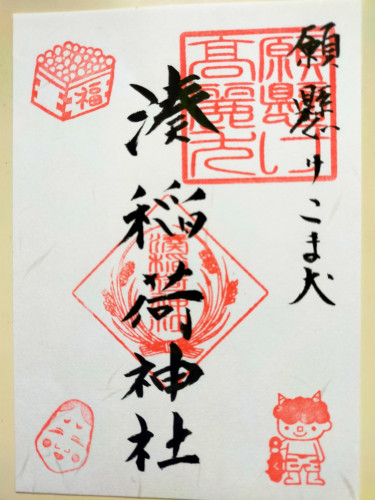 願懸けこま犬
願懸け
高麗犬
湊稲荷神社
湊稲荷神社
福